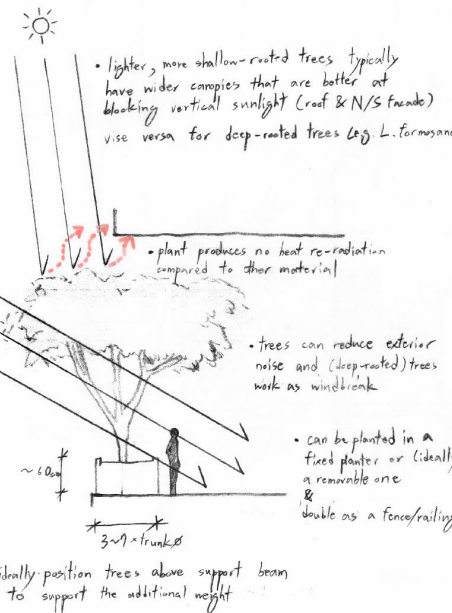 • lighter, more shallow-rooted trees typically
have wider canopies that are better at
blocking vertical sunlight (roof & N/S facade)
vise versa for deep-rooted trees (e.g. L. formosana
• plant produces no heat re-radiation
compared to other material
• trees can reduce exterior
noise and (deep-rooted) trees
work as windbreak
• can be planted in a
fixed planter or (ideally
a removable one
&
double as a fence/railing
~60cm
3~7 × trunk ø
ideally position trees above support beam
to support the additional weight